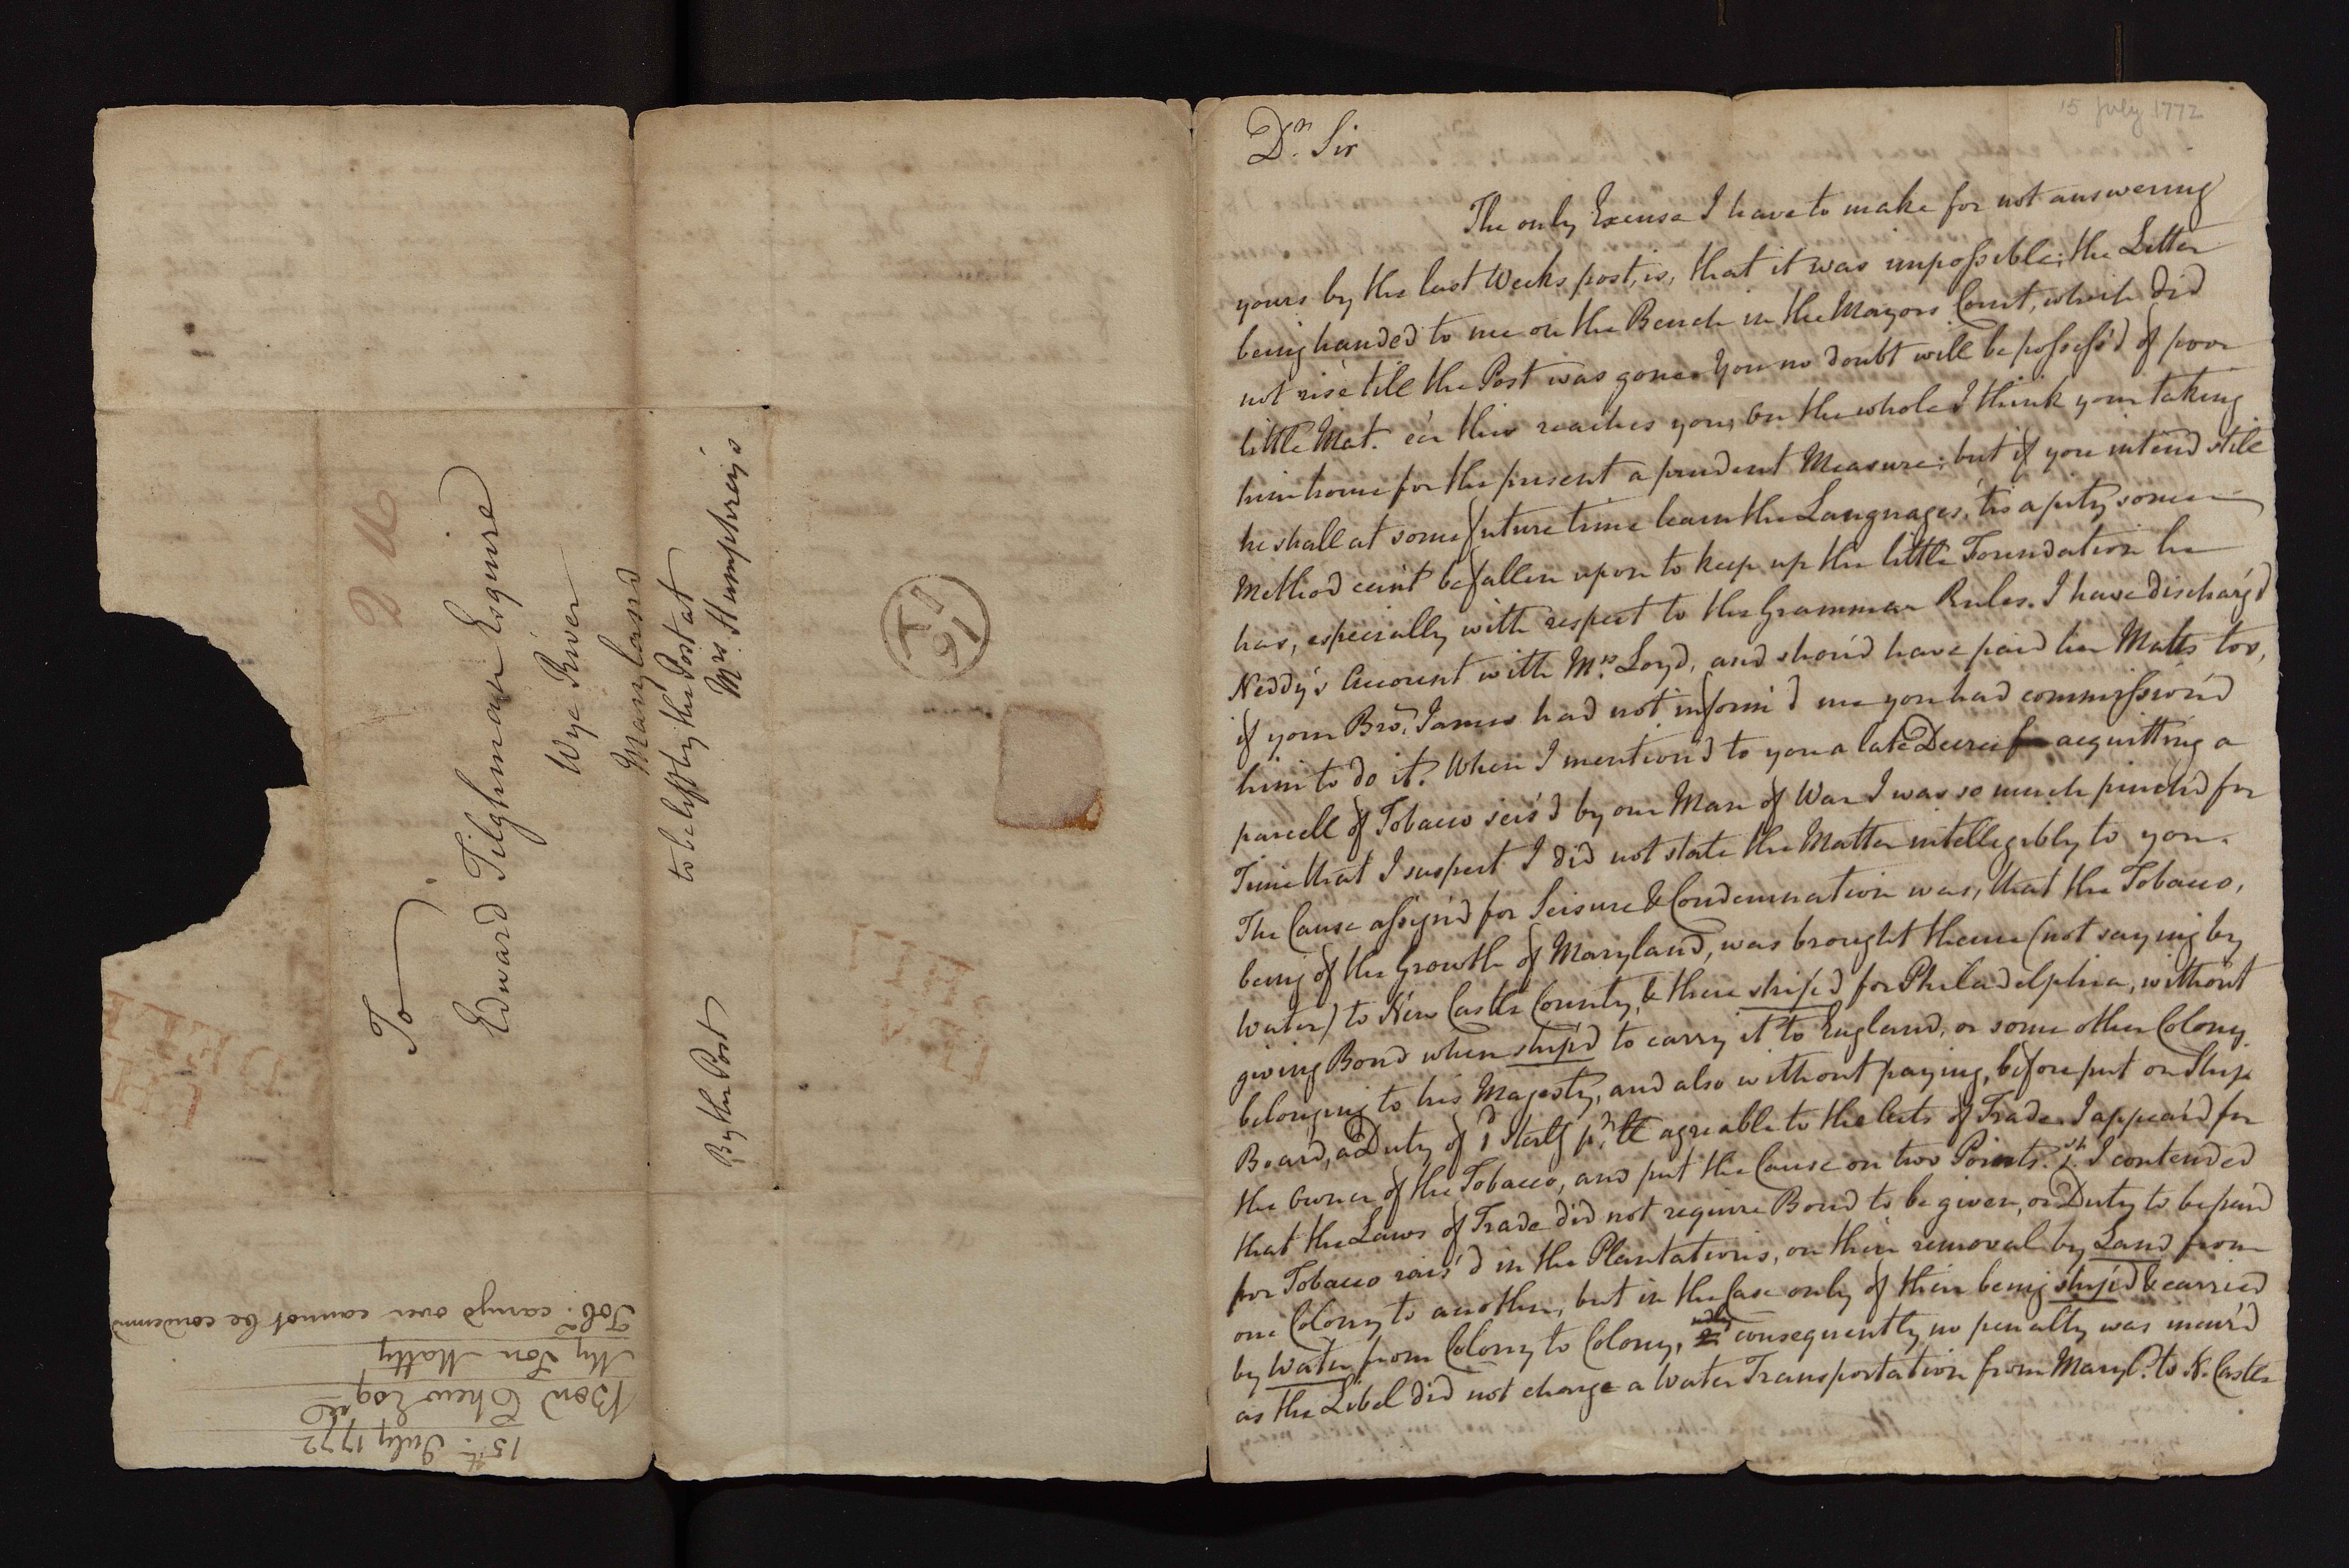 To
Edward Tilghman Esquire
Wye River
Maryland
to be left by the Post at
Mrs. Humphreys
By the Post
15th. July 1772
Benj Chew Esqr
My Son Matty
Tobo. carry'd over cannot be condemnd
15 July 1772
Dr. Sir
The only Excuse I have to make for not answering
yours by the last Weeks post, is, that it was impossible; the Letter
being handed to me on the Bench in the Mayors Court, which did
not rise till the Post was gone. You no doubt will be possess'd of poor
little Mat. e'er this reaches you, on the whole I think your taking
him home for the present a prudent Measure; but if you intend still
he shall at some future time learn the Languages, 'tis a pity some
Method can't be fallen upon to keep up the little Foundation he
has, especially with respect to the Grammar Rules. I have discharg'd
Neddy's Account with Mrs. Loyd, and shou'd have paid her Matts too,
if your Bror. James had not inform'd me you had commission'd
him to do it. When I mention'd to you a late Decree acquitting a
parcell of Tobacco seis'd by our Man of War I was so much pinch'd for
Time that I suspect I did not state the Matter intelligibly to you.
The Cause assign'd for Seisure & Condemnation was, that the Tobacco,
being of the Growth of Maryland, was brought thence (not saying by
Water) to New Castle County, & there ship'd for Philadelphia, without
giving Bond when ship'd to carry it to England, or some other Colony
belonging to his Majesty, and also without paying, before put on Ship
Board, a Duty of 1d Sterlg pr. lb agreable to the Acts of Trade. I appear'd for
the Owner of the Tobacco, and put the Cause on two Points. 1st. I contended
that the Laws of Trade did not require Bond to be given, or Duty to be paid
for Tobacco rais'd in the Plantations, on their removal by Land from
one Colony to another, but in the Case only of their being ship'd & carried
by Water from Colony to Colony, consequently no penalty was incur'd
as the Libel did not charge a Water Transportation from Maryld. to N. Castle